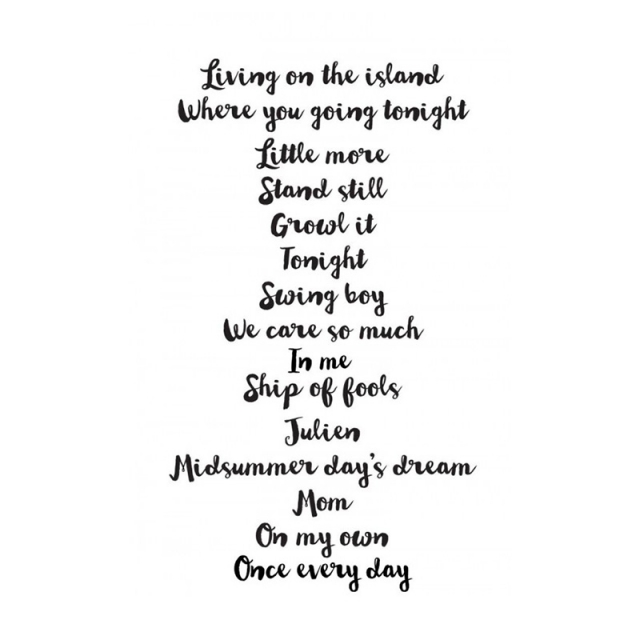 Living on the island
Where you going tonight
Little more
Stand still
Growl it
Tonight
Swing boy
We care so much
In me
Ship of fools
Julien
Midsummer day's dream
Mom
On my own
Once every day